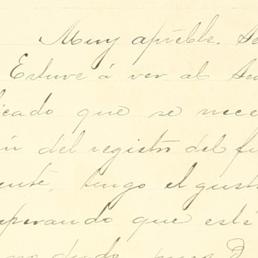 Muy apreble. Se
Estuve á ver al Se
icado que se nece
del registro del fu
ente, tengo el gust
sperando que esté
no dudo, pues D